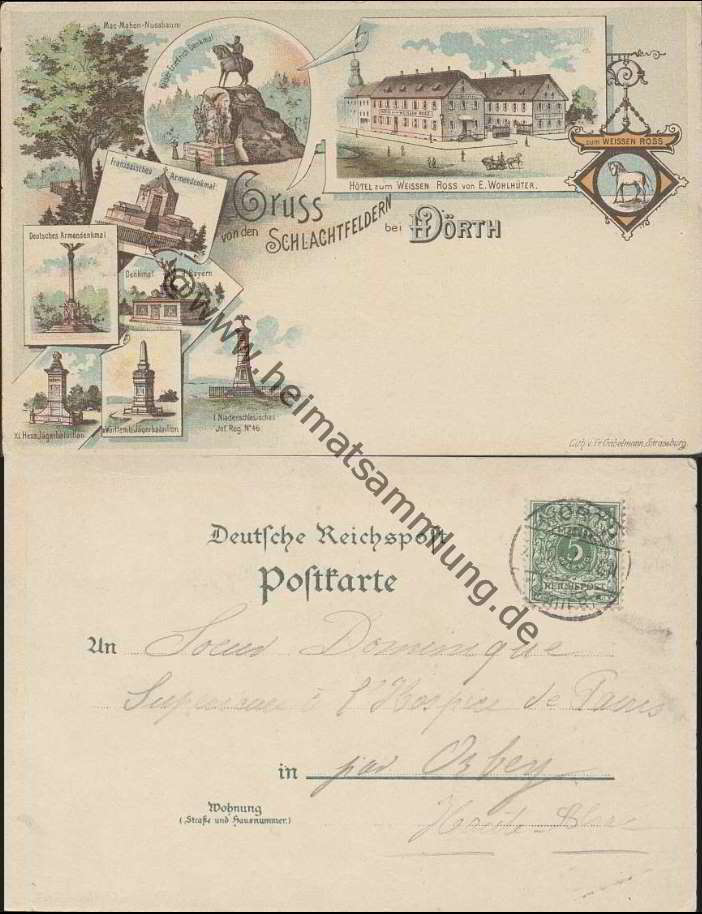 Mac-Mahon-Nussbaum
Kaiser Friedrich Denkmal
Französisches
Armeedenkmal
Deutsches Armeedenkmal
Denkmal d. Bayern
XI. Hess. Jägerbataillon.
Württemb. Jägerbataillon.
I. Niederschlesisches
Inf. Reg. No 46.
HÔTEL zum WEISSEN ROSS von E. WOHLHÜTER.
zum WEISSEN ROSS
Gruss
von den SCHLACHTFELDERN
bei WÖRTH
Lith. v. Fr. Gnädelmann, Strassburg.
© www.heimatsammlung.de
Deutsche Reichspost
Postkarte
WÖRTH
5
REICHSPOST
An Soeur Dominique
Supérieure à l'Hospice de Pairis
in par Orbey
Haute-Alsace
Wohnung
(Straße und Hausnummer.)